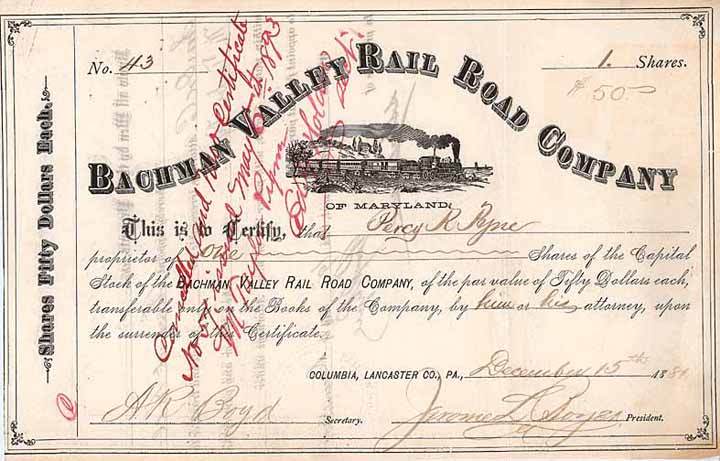 No. 43
1. Shares.
$50.00
BACHMAN VALLEY RAIL ROAD COMPANY
OF MARYLAND.
This is to Certify, that Percy R. Pyne
proprietor of One Shares of the Capital
Stock of the BACHMAN VALLEY RAIL ROAD COMPANY, of the par value of Fifty Dollars each,
transferable only on the Books of the Company, by him or his attorney, upon
the surrender of this Certificate.
COLUMBIA, LANCASTER CO., PA., December 15th 188
A R Boyd Secretary.
Jerome L. President.
Shares Fifty Dollars Each.
Cancelled and New Certificate
No. issued May 1893